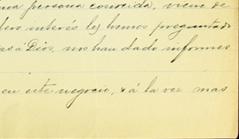 una persona conocida, viene de
dero interés les hemos preguntado
as á Dios, nos han dado informes
en este negocio, & á la vez mas